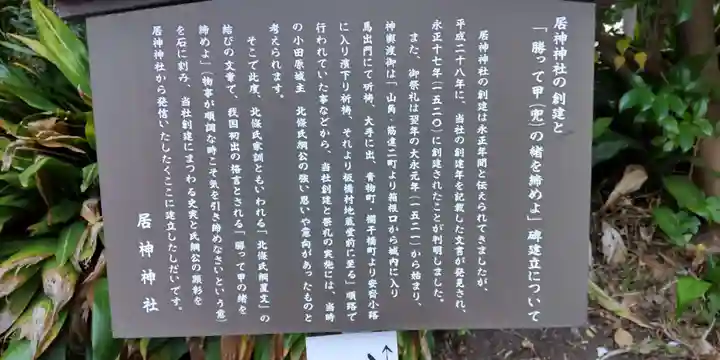 居神神社の創建と
「勝って甲(兜)の緒を締めよ」碑建立について
居神神社の創建は永正年間と伝えられてきましたが、
平成二十八年に、当社の創建年を記載した文書が発見され、
永正十七年(一五二〇)に創建されたことが判明しました。
また、御祭礼は翌年の大永元年(一五二一)から始まり、
神輿渡御は「山角・筋違二町より箱根口から城内に入り
馬出門にて祈祷、大手に出、青物町・欄干橋町より安斎小路
に入り濱下り祈祷、それより板橋村地蔵堂前に至る」順路で
行われていた事などから、当社創建と祭礼の実施には、当時
の小田原城主 北條氏綱公の強い思いや意向があったものと
考えられます。
そこで此度、北條氏家訓ともいわれる「北條氏綱置文」の
結びの文章で、我国初出の格言とされる「勝って甲の緒を
締めよ」(物事が順調な時こそ気を引き締めなさいという意)
を石に刻み、当社創建にまつわる史実と氏綱公の顕彰を
居神神社から発信いたしたくここに建立したしだいです。
居神神社